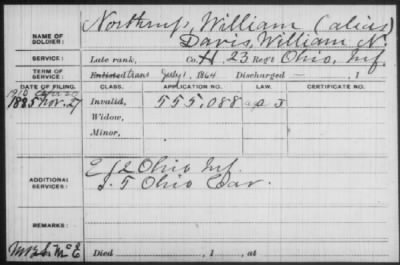 NAME OF SOLDIER: Northrup, William (alias)
Davis, William N.
SERVICE: Late rank, Co. H, 23 Reg't Ohio, Inf.
TERM OF SERVICE: Enlisted July 1, 1864 Discharged , 1
DATE OF FILING. CLASS. APPLICATION NO. LAW. CERTIFICATE NO.
1885 Nov. 27 Invalid, 555.088
Widow,
Minor,
ADDITIONAL SERVICES: E 82 Ohio Inf.
5 Ohio Cav.
REMARKS:
Died , 1 , at